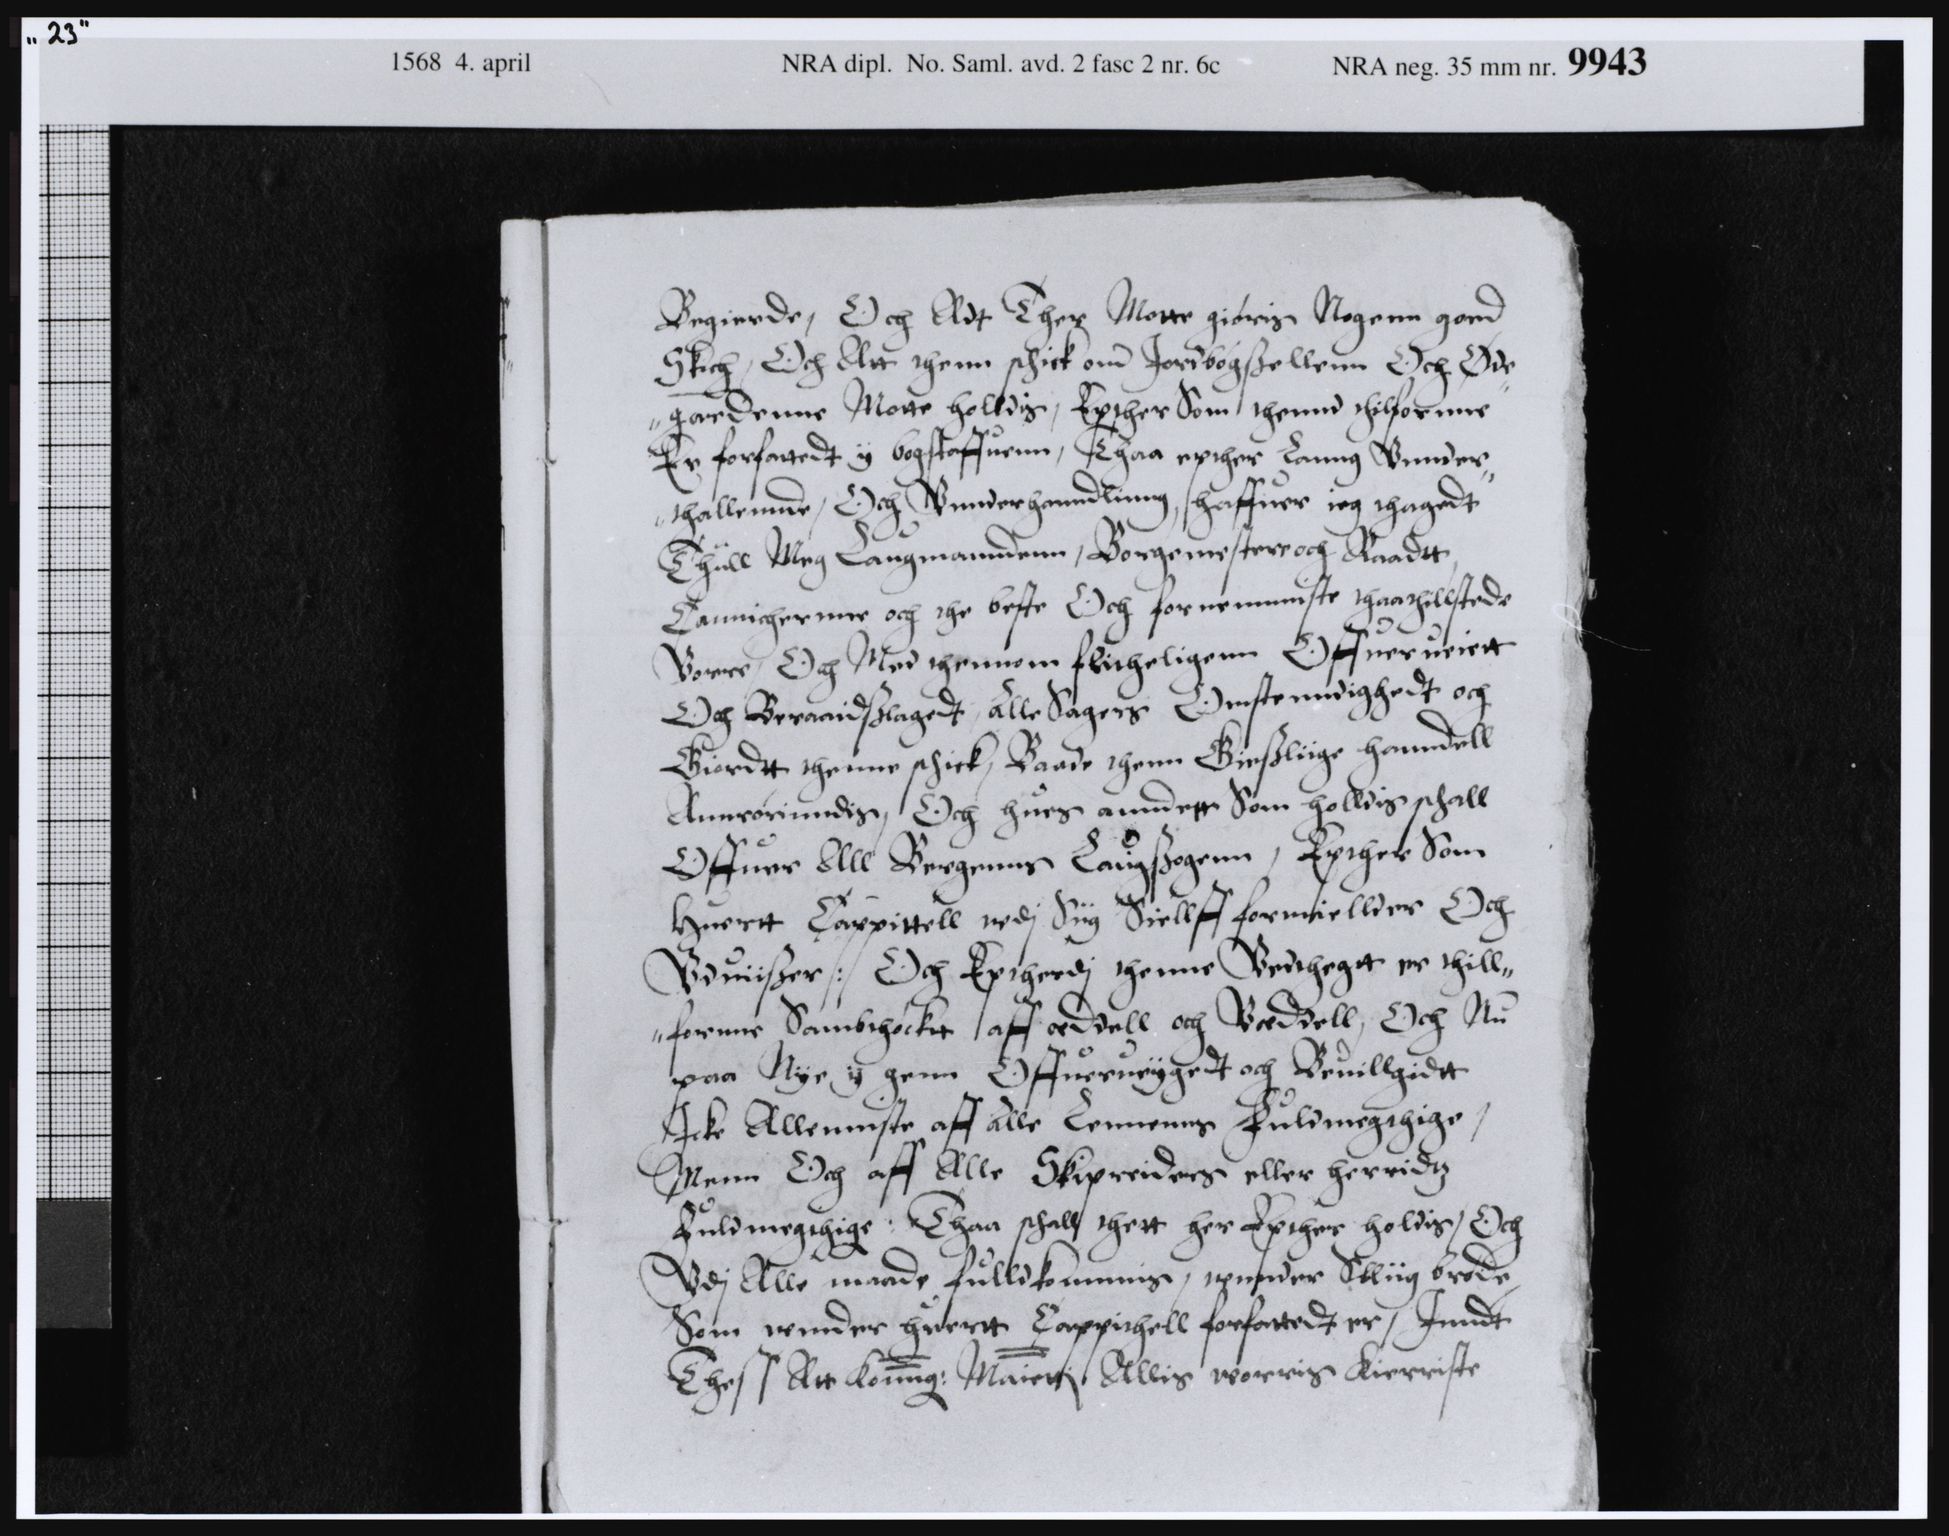 „23"
1568 4. april NRA dipl. No. Saml. avd. 2 fasc 2 nr. 6c NRA neg. 35 mm nr. 9943
Begierde, Och Adt Ther Motte giøris Nogenn goed
Skich, Och Att thenn schick om Jordbögßellenn Och Øde„
„gaardenne Motte holldis, Epther Som thennd thilfornne
Er forfattedt y bogstaffuenn, Thaa epther Lanng Vnnder„
„thallennde, Och Vnnderhanndlinng, haffuer ieg thagedt
Thüll Meg Laugmanndenn, Borgemestere och Raadtt,
Cannichernne och the beste Och fornemmiste thaa thillstede
Vorre, Och Med thennom flitheligenn Offuerueiett
Och Beraaidßlagedt, Alle Sagers Omstenndighedt och
Giordtt thenne schick, Baade thenn Gießliige hanndell
Annrørinndis, Och hues anndett Som holldis schall
Offuer All Bergenns Laugßogenn, Epther Som
Huertt Cappittell vdj Siig Siellff formiellder Och
Vduiißer: Och Eptherdj thenne Vedthegtt er thill„
„fornne Sambthøckt aff ædell och Væddell, Och Nu
paa Nye y genn Offuerueygedt och Beuillgidtt
Icke Allenniste aff Alle Lennenns Fuldmegthige,
Menn Och aff Alle Skipreiders eller herridz
Fuldmegthige: Thaa schall thett her Epther holdis, Och
Vdj Alle maade fulldkommis, vnnder Sliig brøde
Som vnnder huertt Cappithell forfattedt er, Inndt
Thess Att Konng: Maiettz Allis worris Kierriste